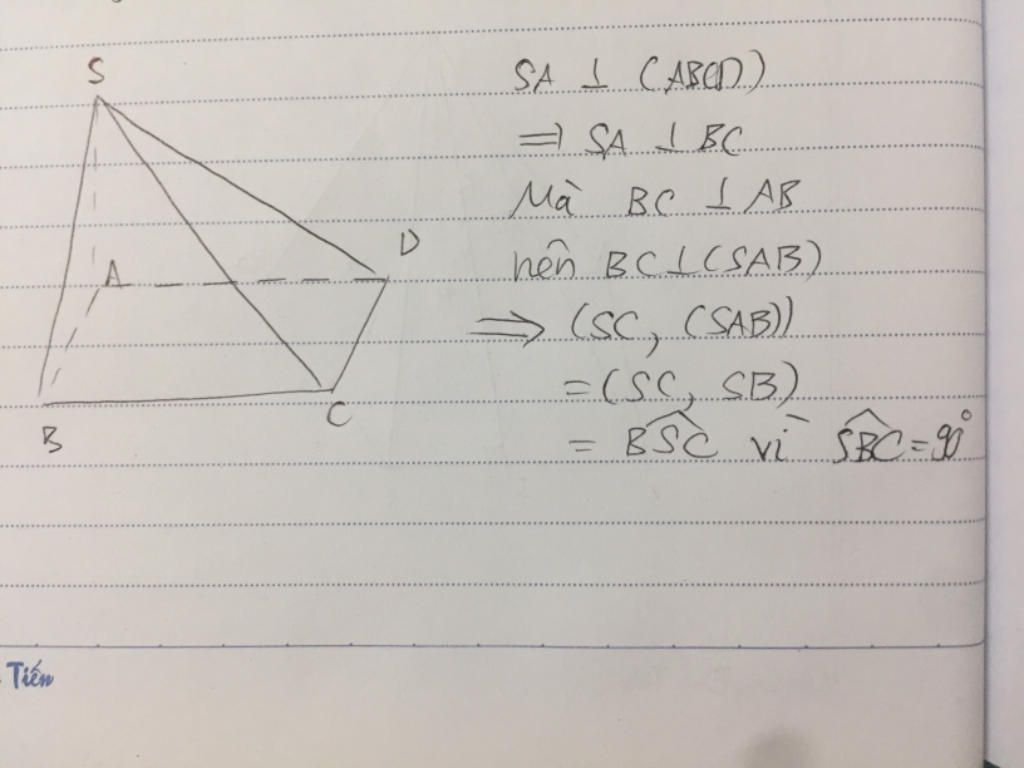 S
A
D
B
C
SA ⊥ (ABCD)
⇒ SA ⊥ BC
Mà BC ⊥ AB
nên BC ⊥ (SAB)
⇒ (SC, (SAB))
= (SC, SB)
= \widehat{BSC} vì \widehat{SBC} = 90°
Tiến